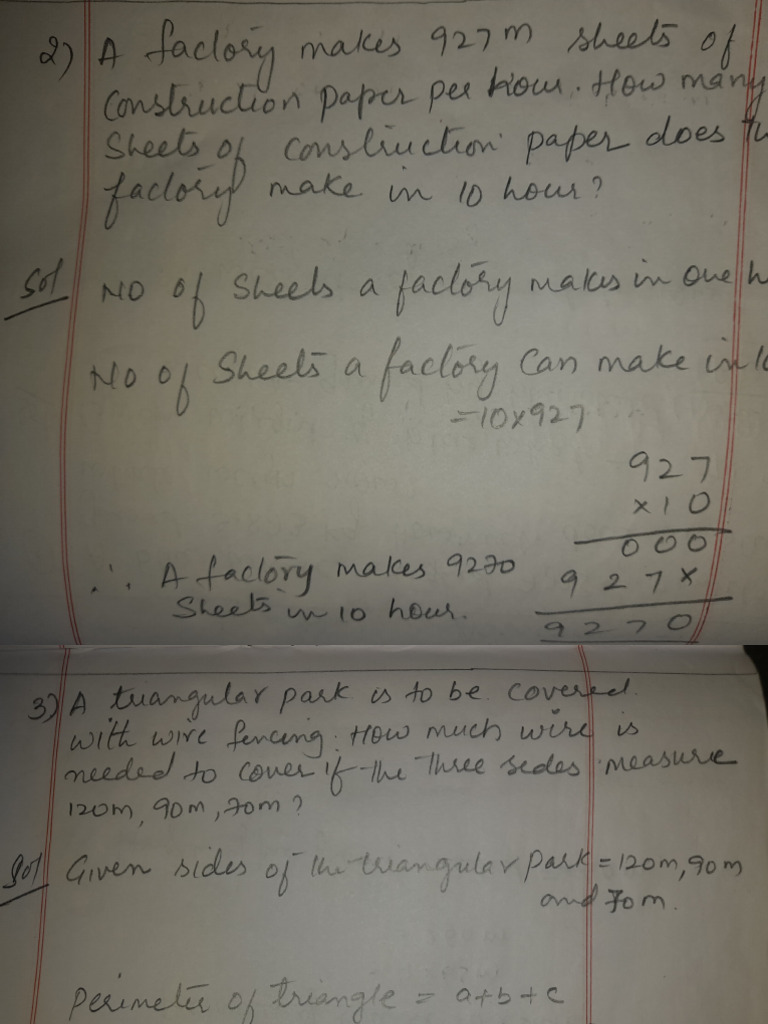 2) A factory makes 927 m sheets of
Construction paper per hour. How many
Sheets of construction paper does
factory make in 10 hour?
Sol No of Sheets a factory makes in one
No of Sheets a factory Can make in
=10×927
927
×10
000
∴ A factory makes 9270
927×
Sheets in 10 hour.
9270
3) A triangular park is to be covered.
with wire fencing. How much wire is
needed to cover if the Three sides measure
120m, 90m, 70m?
Sol Given sides of the triangular Park = 120m, 90m
and 70m.
Perimeter of triangle = a+b+c